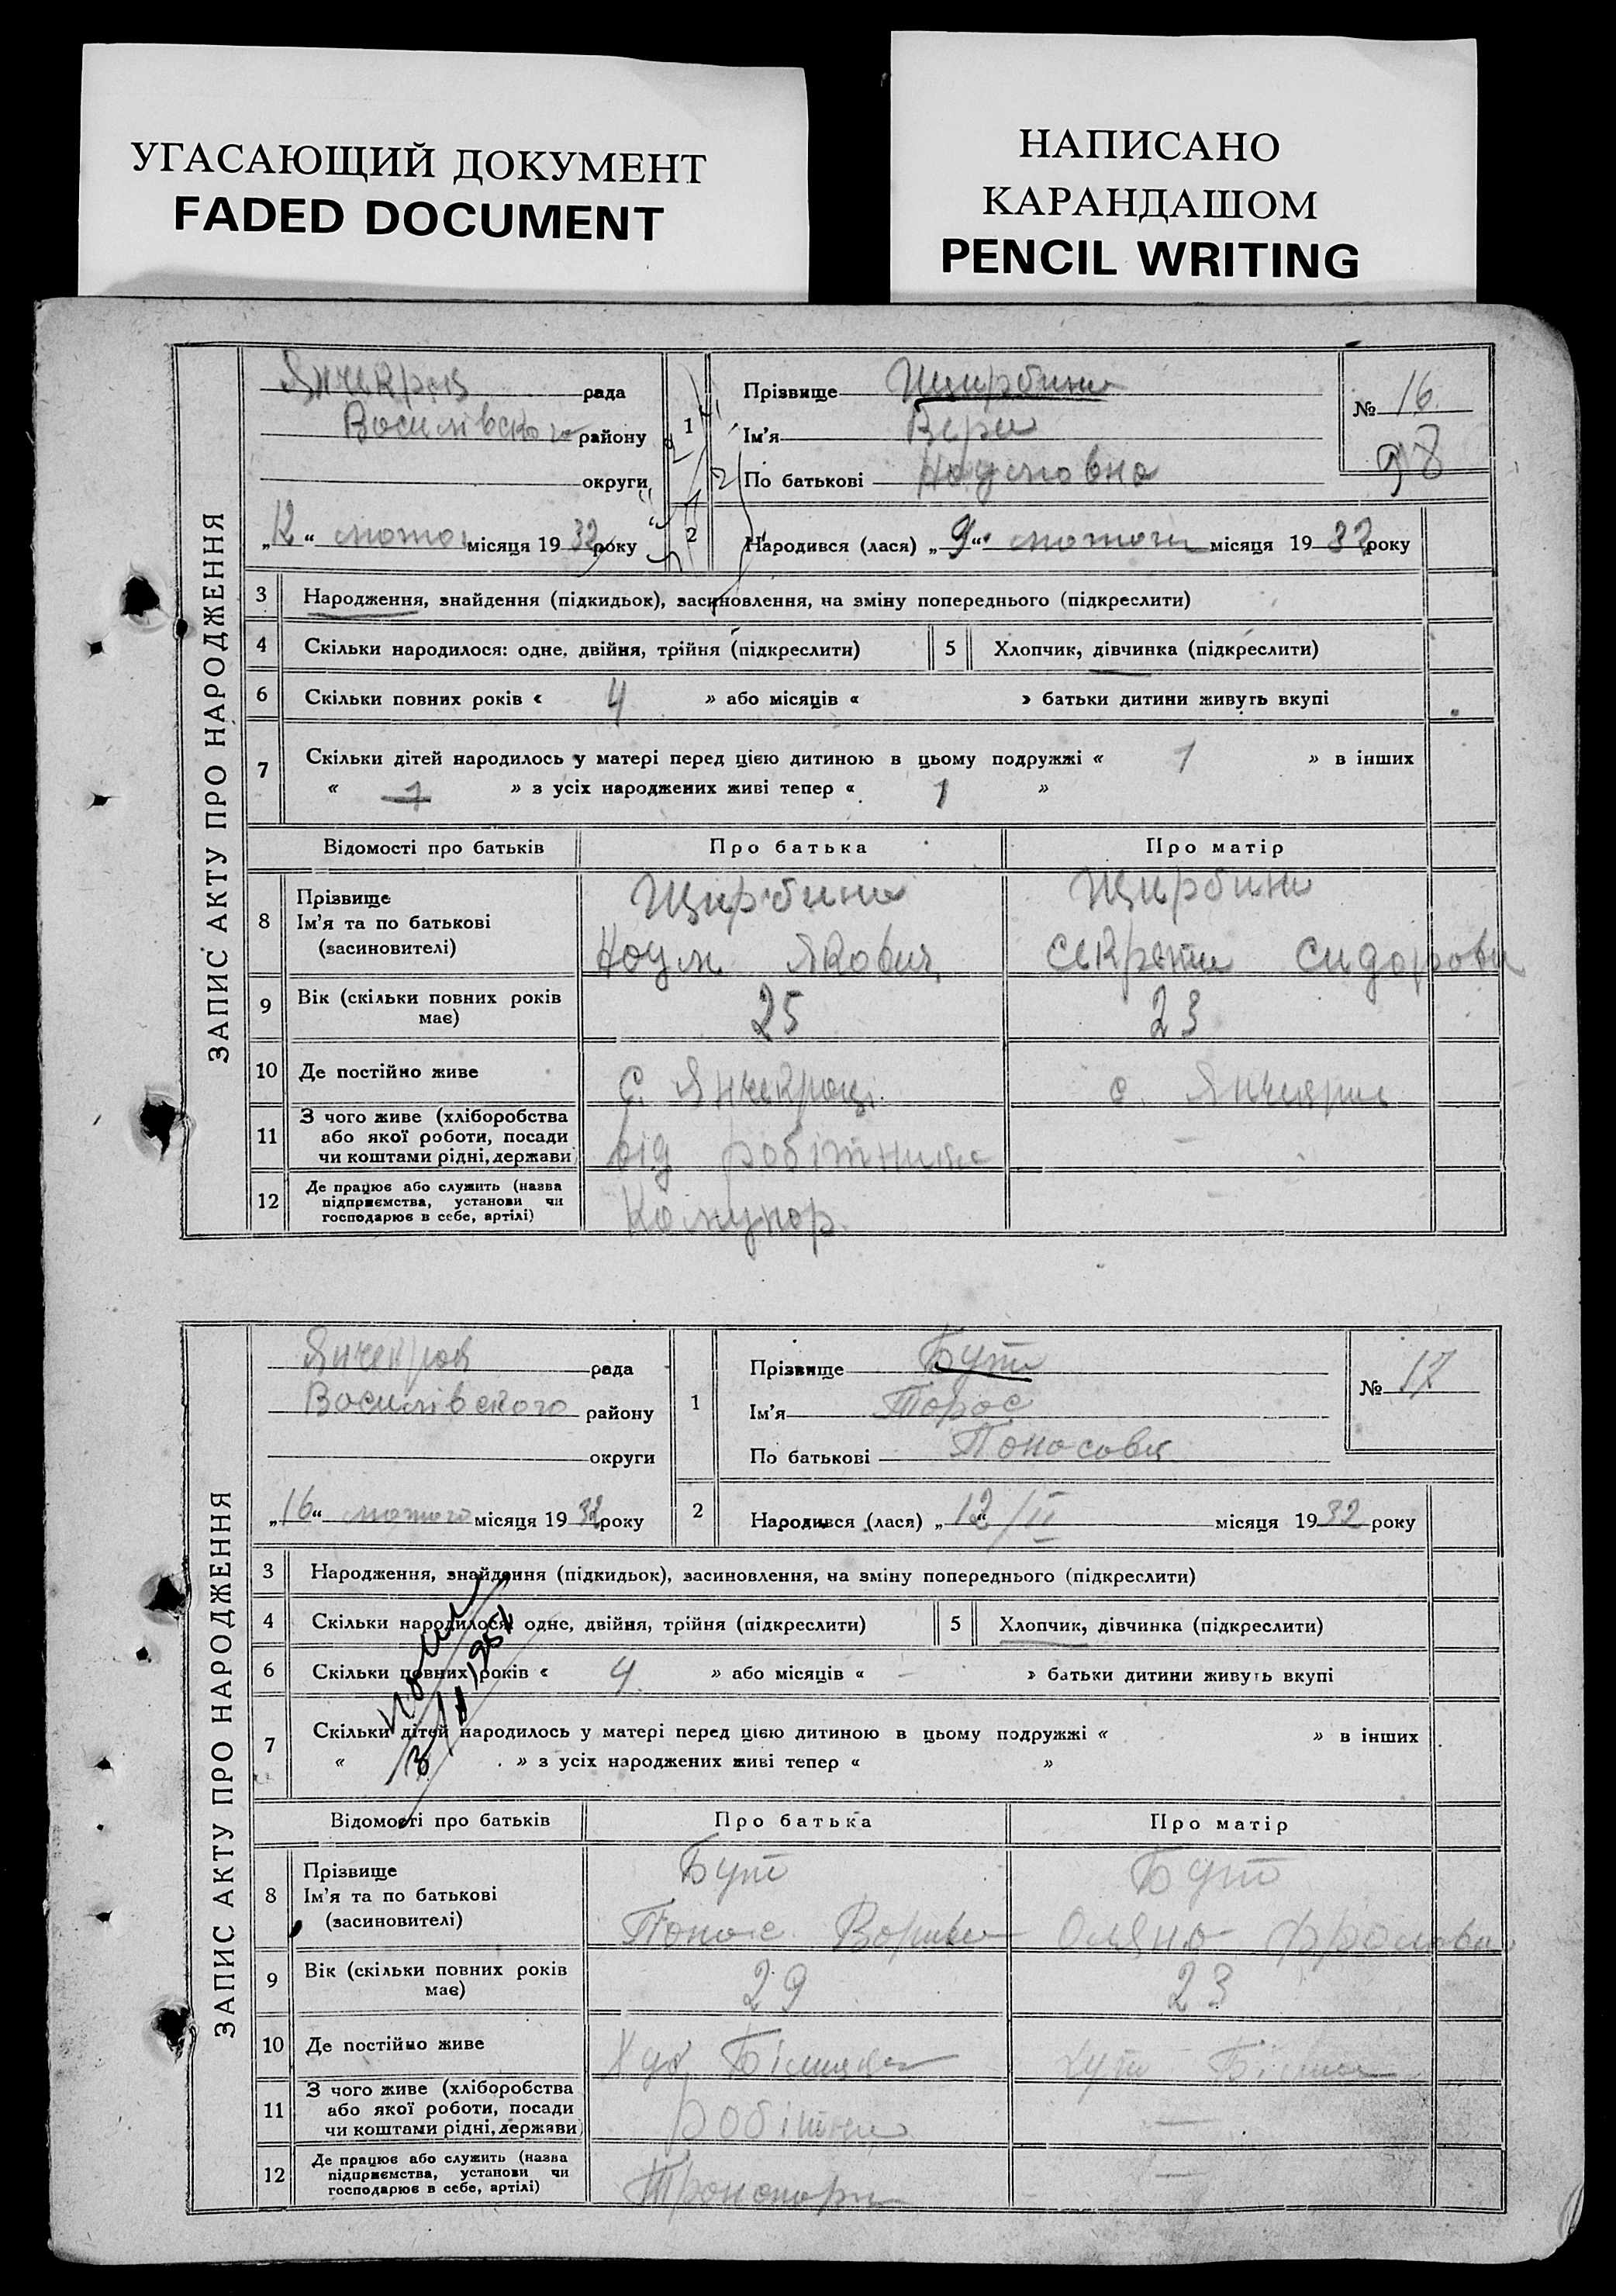 УГАСАЮЩИЙ ДОКУМЕНТ
FADED DOCUMENT
НАПИСАНО
КАРАНДАШОМ
PENCIL WRITING
ЗАПИС АКТУ ПРО НАРОДЖЕННЯ
Янчекрак рада
Василівского району
округи
„12“ лютого місяця 1932 року
1 Прізвище Щирбина
Ім'я Вера
По батькові Наумовна
№ 16
98
2 Народився (лася) „9“ лютого місяця 1932 року
3 Народження, знайдення (підкидьок), засиновлення, на зміну попереднього (підкреслити)
4 Скільки народилося: одне, двійня, трійня (підкреслити) 5 Хлопчик, дівчинка (підкреслити)
6 Скільки повних років « 4 » або місяців « » батьки дитини живуть вкупі
7 Скільки дітей народилось у матері перед цією дитиною в цьому подружжі « 1 » в інших
« 1 » з усіх народжених живі тепер « 1 »
Відомості про батьків Про батька Про матір
8 Прізвище
Ім'я та по батькові
(засиновителі)
Щирбина
Наум Якович
Щирбина
Сидорови
9 Вік (скільки повних років
має)
25 23
10 Де постійно живе С. Янчекрац с.
11 З чого живе (хліборобства
або якої роботи, посади
чи коштами рідні, держави
від робітника —
12 Де працює або служить (назва
підприємства, установи чи
господарює в себе, артілі)
—
ЗАПИС АКТУ ПРО НАРОДЖЕННЯ
Янчекрак рада
Василівского району
округи
„16“ лютого місяця 1932 року
1 Прізвище Бут
Ім'я Тарас
По батькові Панасович
№ 17
2 Народився (лася) „12“/II місяця 1932 року
3 Народження, знайдення (підкидьок), засиновлення, на зміну попереднього (підкреслити)
4 Скільки народилося: одне, двійня, трійня (підкреслити) 5 Хлопчик, дівчинка (підкреслити)
6 Скільки повних років « 4 » або місяців « — » батьки дитини живуть вкупі
7 Скільки дітей народилось у матері перед цією дитиною в цьому подружжі « » в інших
« » з усіх народжених живі тепер « »
Відомості про батьків Про батька Про матір
8 Прізвище
Ім'я та по батькові
(засиновителі)
Бут
Панас
Бут
Оляна Фролова
9 Вік (скільки повних років
має)
29 23
10 Де постійно живе
11 З чого живе (хліборобства
або якої роботи, посади
чи коштами рідні, держави
робітник —
12 Де працює або служить (назва
підприємства, установи чи
господарює в себе, артілі)
Транспорт —